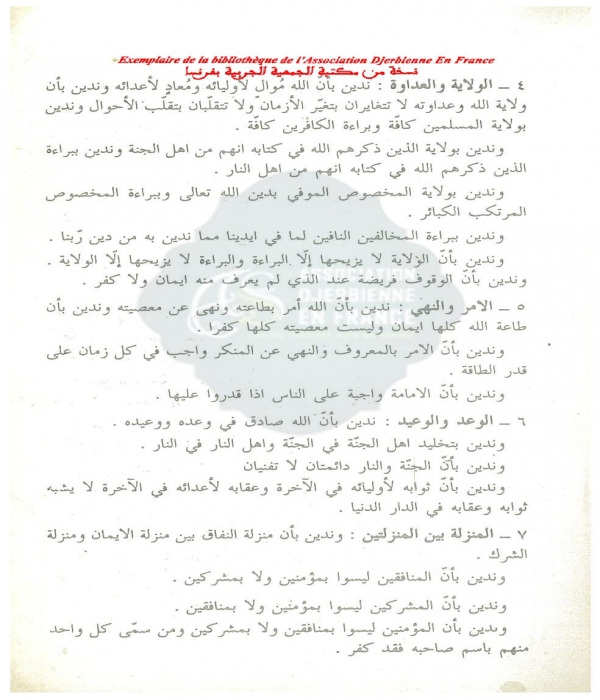 Exemplaire de la bibliothèque de l'Association Djerbienne En France
نسخة من مكتبة الجمعية الجربية بفرنسا
٤ ــ الولاية والعداوة : ندين بأن الله مُوال لأوليائه ومُعادٍ لأعدائه وندين بأن
ولاية الله وعداوته لا تتغايران بتغيّر الأزمان ولا تتقلّبان بتقلّب الأحوال وندين
بولاية المسلمين كافّة وبراءة الكافرين كافّة .
وندين بولاية الذين ذكرهم الله في كتابه انهم من اهل الجنة وندين ببراءة
الذين ذكرهم الله في كتابه انهم من اهل النار .
وندين بولاية المخصوص الموفي بدين الله تعالى وببراءة المخصوص
المرتكب الكبائر .
وندين ببراءة المخالفين النافين لما في ايدينا مما ندين به من دين ربّنا .
وندين بأنّ الولاية لا يزيحها إلّا البراءة والبراءة لا يزيحها إلّا الولاية .
وندين بأنّ الوقوف فريضة عند الذي لم يعرف منه ايمان ولا كفر .
٥ ــ الامر والنهي : ندين بأنّ الله أمر بطاعته ونهى عن معصيته وندين بأن
طاعة الله كلها ايمان وليست معصيته كلها كفرا .
وندين بأنّ الامر بالمعروف والنهي عن المنكر واجب في كل زمان على
قدر الطاقة .
وندين بأنّ الامامة واجبة على الناس اذا قدروا عليها .
٦ ــ الوعد والوعيد : ندين بأنّ الله صادق في وعده ووعيده .
وندين بتخليد اهل الجنّة في الجنّة واهل النار في النار .
وندين بأنّ الجنّة والنار دائمتان لا تفنيان
وندين بأنّ ثوابه لأوليائه في الآخرة وعقابه لأعدائه في الآخرة لا يشبه
ثوابه وعقابه في الدار الدنيا .
٧ ــ المنزلة بين المنزلتين : وندين بأن منزلة النفاق بين منزلة الايمان ومنزلة
الشرك .
وندين بأنّ المنافقين ليسوا بمؤمنين ولا بمشركين .
وندين بأنّ المشركين ليسوا بمؤمنين ولا بمنافقين .
وندين بأن المؤمنين ليسوا بمنافقين ولا بمشركين ومن سمّى كل واحد
منهم باسم صاحبه فقد كفر .
ASSOCIATION
DJERBIENNE
EN FRANCE